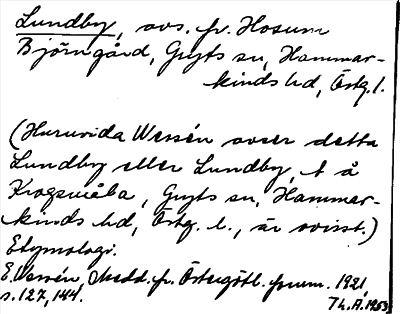 Lundby, avs. fr. Hosum
Björngård, Gryts sn, Hammar-
kinds hd, Östg. l.
(Huruvida Wessén avser detta
Lundby eller Lundby, t å
Krogsmåla, Gryts sn, Hammar-
kinds hd, Östg. l., är ovisst.)
Etymologi.
E. Wessén, Medd. fr. Östergötl. fornm. 1921,
s. 127, 144.
Th. A. 1953